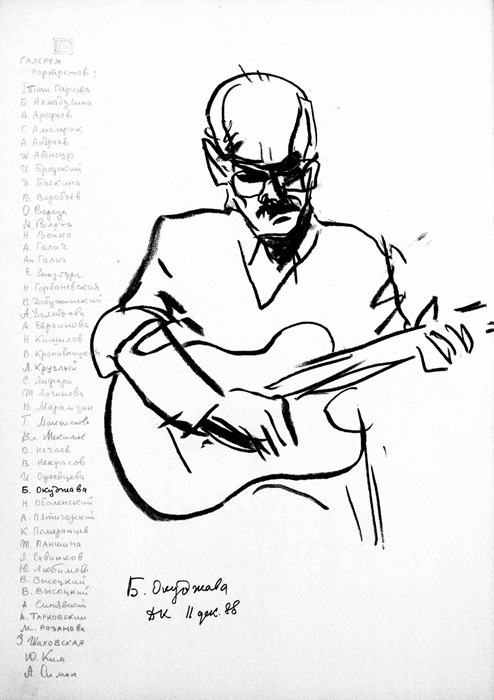 Галерея
портретов:
Б. Ахмадулина
А. Арефьев
Г. Амальрик
А. Андреев
И. Бродский
И. Баскина
В. Воробьёв
Н. Войко
А. Галич
Ан. Галич
Н. Горбаневская
В. Добужинский
А. Евреинова
Н. Кишилов
В. Кропивницкий
Л. Круглый
С. Лифарь
М. Логинова
В. Марамзин
Т. Максимова
Вл. Максимов
В. Нечаев
В. Некрасов
И. Одоевцева
Б. Окуджава
Н. Оболенский
А. Пятигорский
К. Померанцев
М. Паншина
Л. Савинков
Ю. Любимов
В. Высоцкий
В. Высоцкий
А. Синявский
А. Тарковский
М. Розанова
З. Шаховская
Ю. Ким
Б. Окуджава
ДК 11 дек. 88